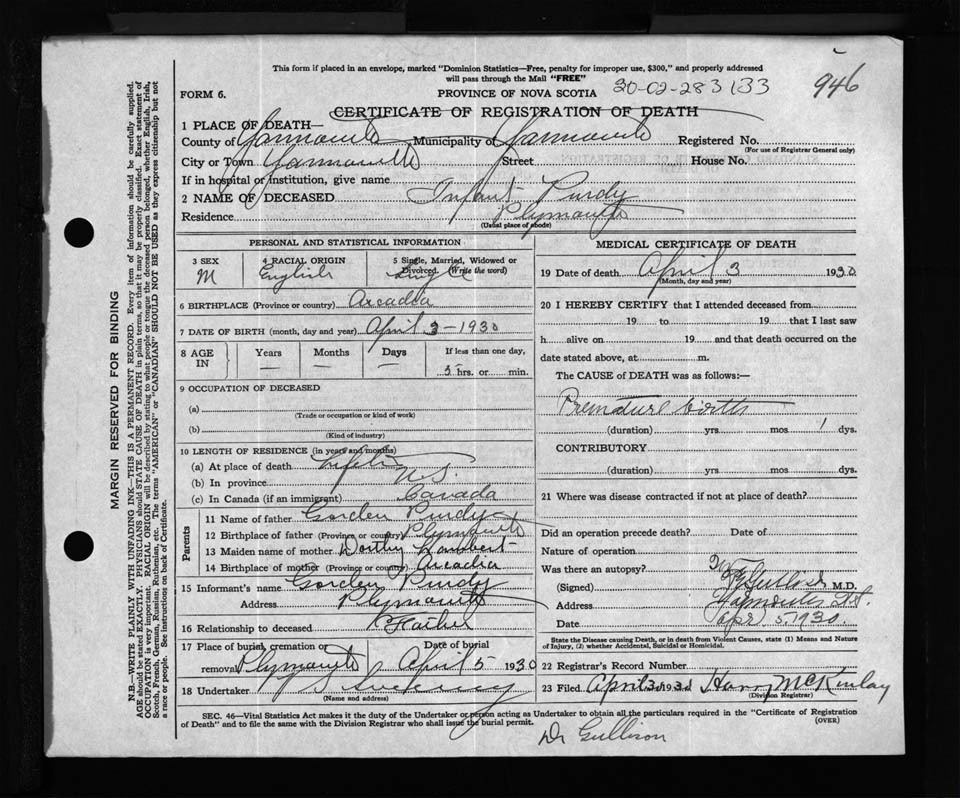 This form if placed in an envelope, marked "Dominion Statistics—Free, penalty for improper use, $300," and properly addressed
will pass through the Mail "FREE"
FORM 6.
PROVINCE OF NOVA SCOTIA
30-02-283133
946
CERTIFICATE OF REGISTRATION OF DEATH
1 PLACE OF DEATH—
County of Yarmouth Municipality of Yarmouth Registered No.
(For use of Registrar General only)
City or Town Yarmouth Street House No.
If in hospital or institution, give name
2 NAME OF DECEASED Infant Purdy
Residence Plymouth
(Usual place of abode)
PERSONAL AND STATISTICAL INFORMATION
3 SEX 4 RACIAL ORIGIN 5 Single, Married, Widowed or
Divorced. (Write the word)
M English Single
6 BIRTHPLACE (Province or country) Arcadia
7 DATE OF BIRTH (month, day and year) April 3-1930
8 AGE IN Years Months Days If less than one day,
— — — 5 hrs. or min.
9 OCCUPATION OF DECEASED
(a)
(Trade or occupation or kind of work)
(b)
(Kind of industry)
10 LENGTH OF RESIDENCE (in years and months)
(a) At place of death
(b) In province N.S.
(c) In Canada (if an immigrant) Canada
Parents
11 Name of father Gorden Purdy
12 Birthplace of father (Province or country) Plymouth
13 Maiden name of mother Dorthy Lambert
14 Birthplace of mother (Province or country) Arcadia
15 Informant's name Gorden Purdy
Address Plymouth
16 Relationship to deceased Father
17 Place of burial, cremation or Date of burial
removal Plymouth April 5 1930
18 Undertaker
(Name and address)
MEDICAL CERTIFICATE OF DEATH
19 Date of death April 3 1930
(Month, day and year)
20 I HEREBY CERTIFY that I attended deceased from
19 to 19 that I last saw
h alive on 19 and that death occurred on the
date stated above, at m.
The CAUSE of DEATH was as follows:—
Premature birth
(duration) yrs mos 1 dys.
CONTRIBUTORY
(duration) yrs mos dys.
21 Where was disease contracted if not at place of death?
Did an operation precede death? Date of
Nature of operation
Was there an autopsy?
(Signed) M.D.
Address Yarmouth
Date Apr 5, 1930.
State the Disease causing Death, or in death from Violent Causes, state (1) Means and Nature
of Injury, (2) whether Accidental, Suicidal or Homicidal.
22 Registrar's Record Number
23 Filed April 3 1930 Harry McKinlay
(Division Registrar)
SEC. 46—Vital Statistics Act makes it the duty of the Undertaker or person acting as Undertaker to obtain all the particulars required in the "Certificate of Registration
of Death" and to file the same with the Division Registrar who shall issue the burial permit.
(OVER)
Dr Gullison
MARGIN RESERVED FOR BINDING
N.B.—WRITE PLAINLY WITH UNFADING INK—THIS IS A PERMANENT RECORD. Every item of information should be carefully supplied.
AGE should be stated EXACTLY. PHYSICIANS should STATE CAUSE OF DEATH in plain terms, so that it may be properly classified. Exact statement of
OCCUPATION is very important. RACIAL ORIGIN will be described by stating to what people or tongue the deceased person belonged, whether English, Irish,
Scotch, French, German, Russian, Ruthenian, etc. The terms "AMERICAN" or "CANADIAN" SHOULD NOT BE USED as they express citizenship but not
a race or people. See instructions on back of Certificate.